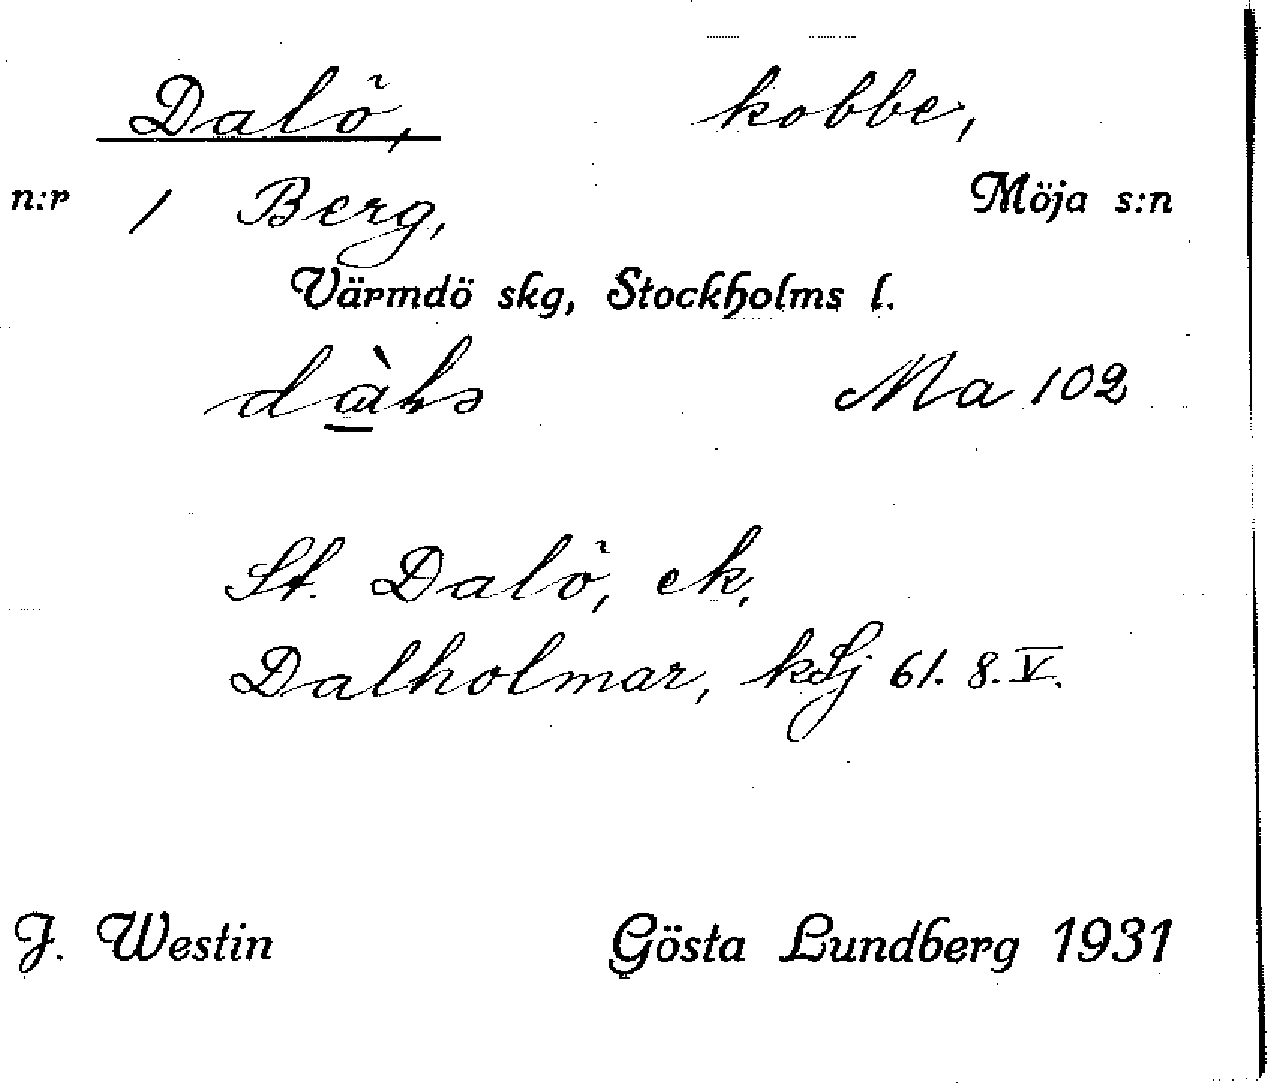 Dalö, kobbe,
n:r 1 Berg, Möja s:n
Värmdö skg, Stockholms l.
Ma 102
St. Dalö, ek.
Dalholmar, kSj 61. 8. V.
J. Westin Gösta Lundberg 1931